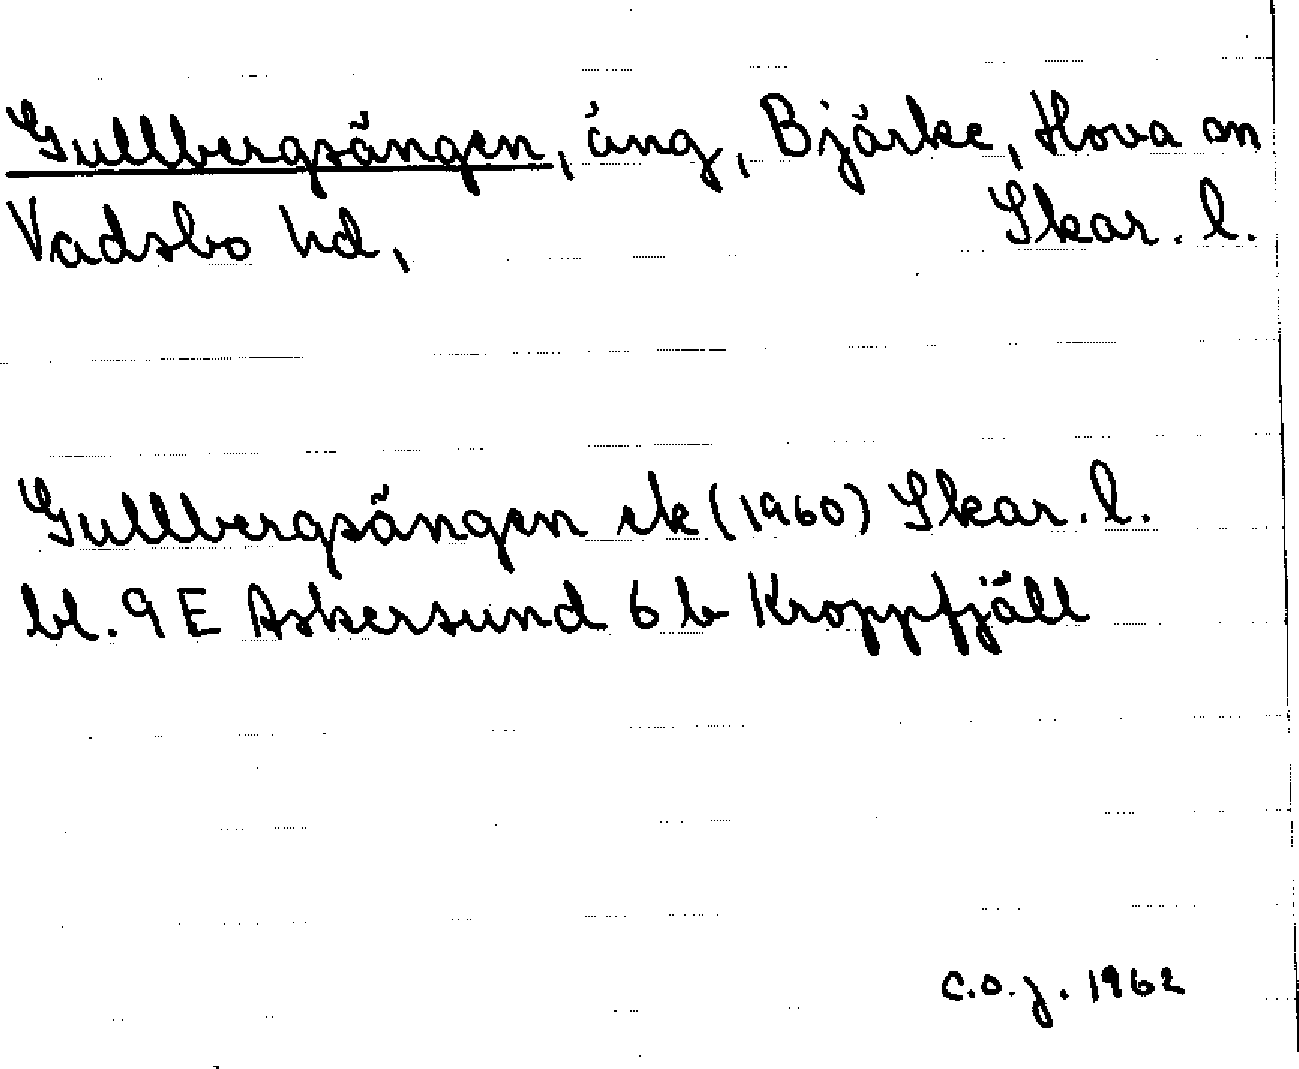 Gullbergsängen, äng, Bjärke, Hova sn
Vadsbo hd, Skar. l.
Gullbergsängen ek (1960) Skar. l.
bl. 9 E Askersund 6 b Kroppfjäll
C.O.J. 1962